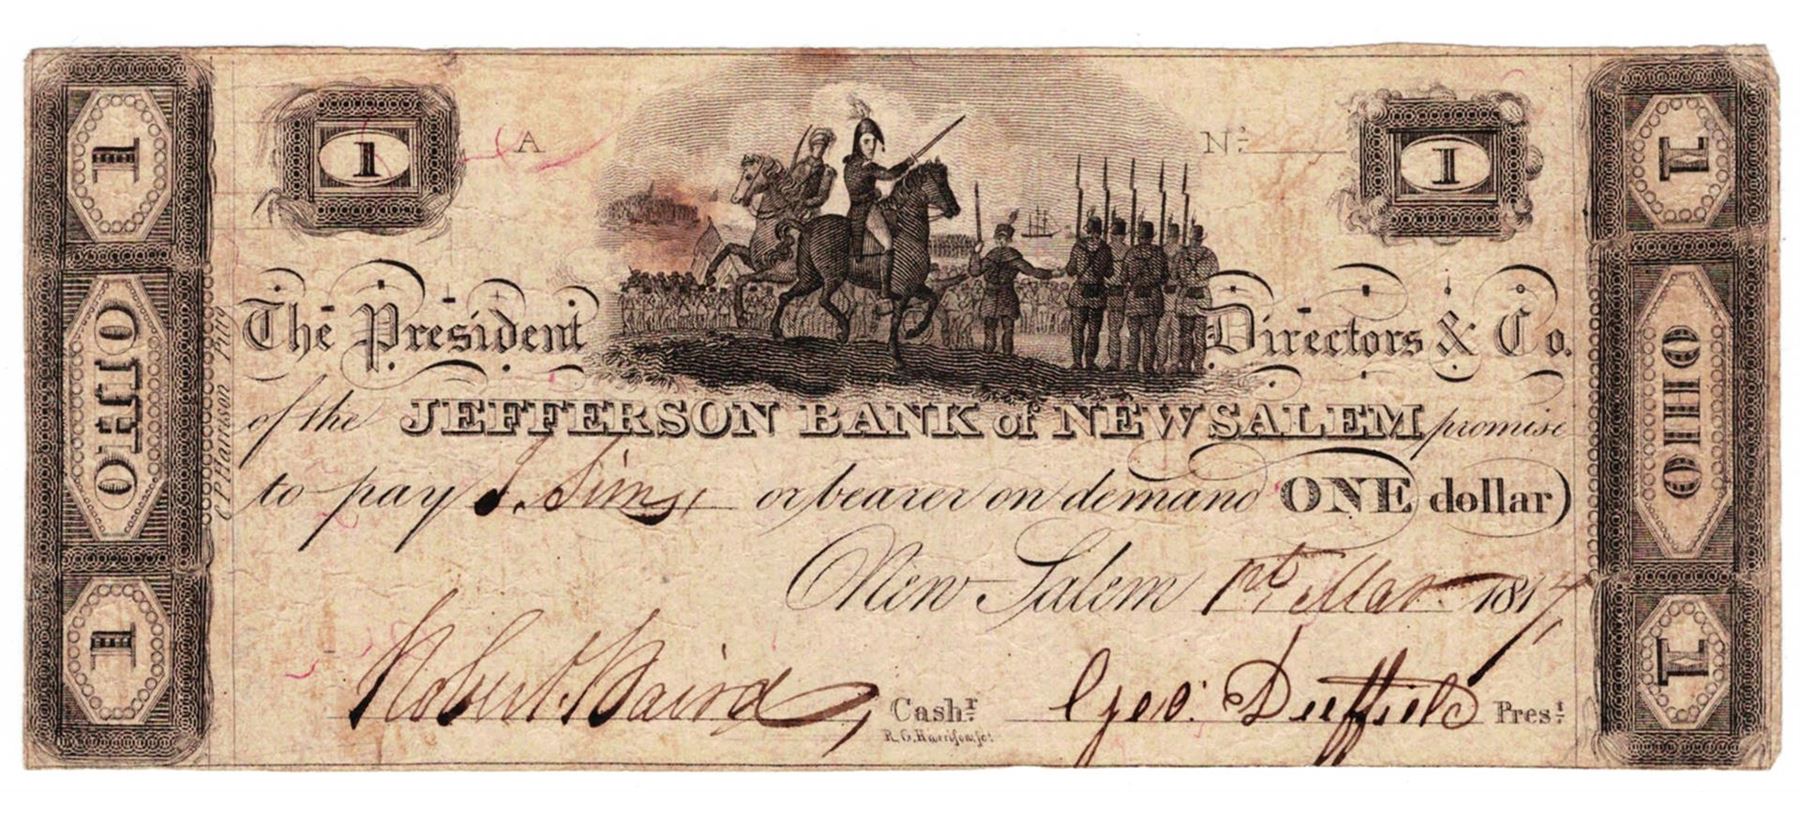 1 A Nº 1
1 1
OHIO OHIO
1 1
C P Harrison
The President Directors & Co.
of the JEFFERSON BANK of NEW SALEM promise
to pay J. Sims, or bearer on demand ONE dollar
New Salem 1st, Mar. 1817,
Robert Baird, Cashr Geo: Duffield Prest
R. G. Harrison, sc!